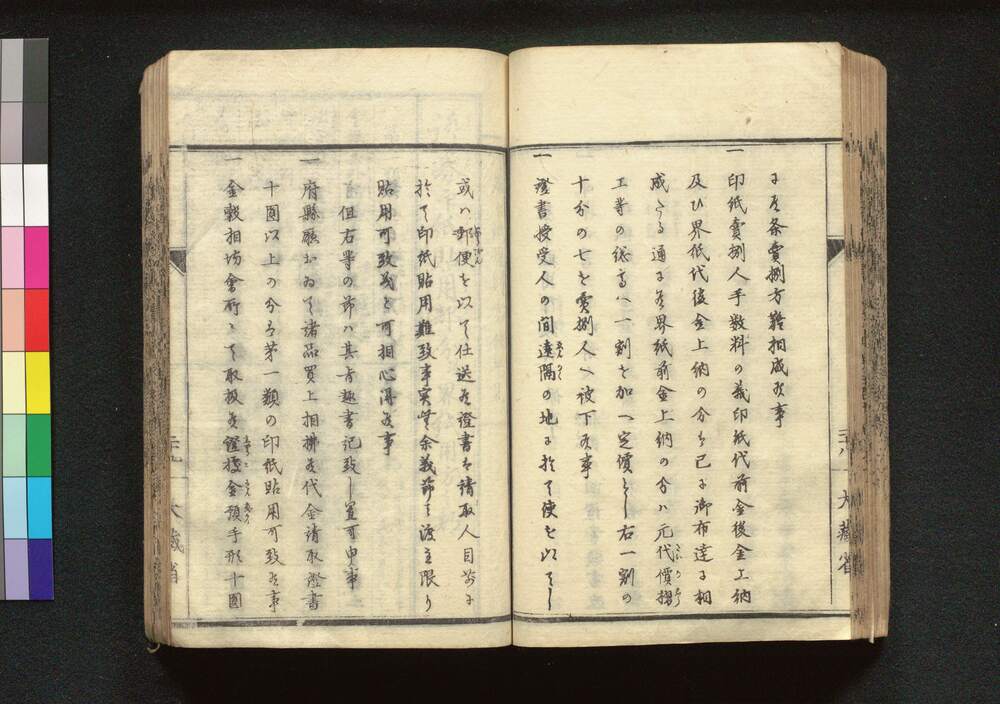 条賣捌方難相成事
一 印紙賣捌人手数料の義印紙代前金後金上納
及ひ界紙代後金上納の分は已に御布達に相
成たる通に界紙前金上納の分ハ元代價摺
工等の紙ハ一割を加へ定價とし右一割の
十分の七を賣捌人へ被下候事
一 證書授受人の間遠隔の地に於て便を以てし
或ハ郵便を以て仕送候證書は請取人目前に
於て印紙貼用難致事実無余義節は渡主限り
貼用可致義と可相心得候事
但右等の節ハ其旨趣書記致し置可申事
一 府縣廳おゐて諸品買上相拂候代金請取證書
十圓以上の分は第一類の印紙貼用可致候事
一 金穀相場會所にて取扱候證據金預手形十圓
大藏省
大藏省